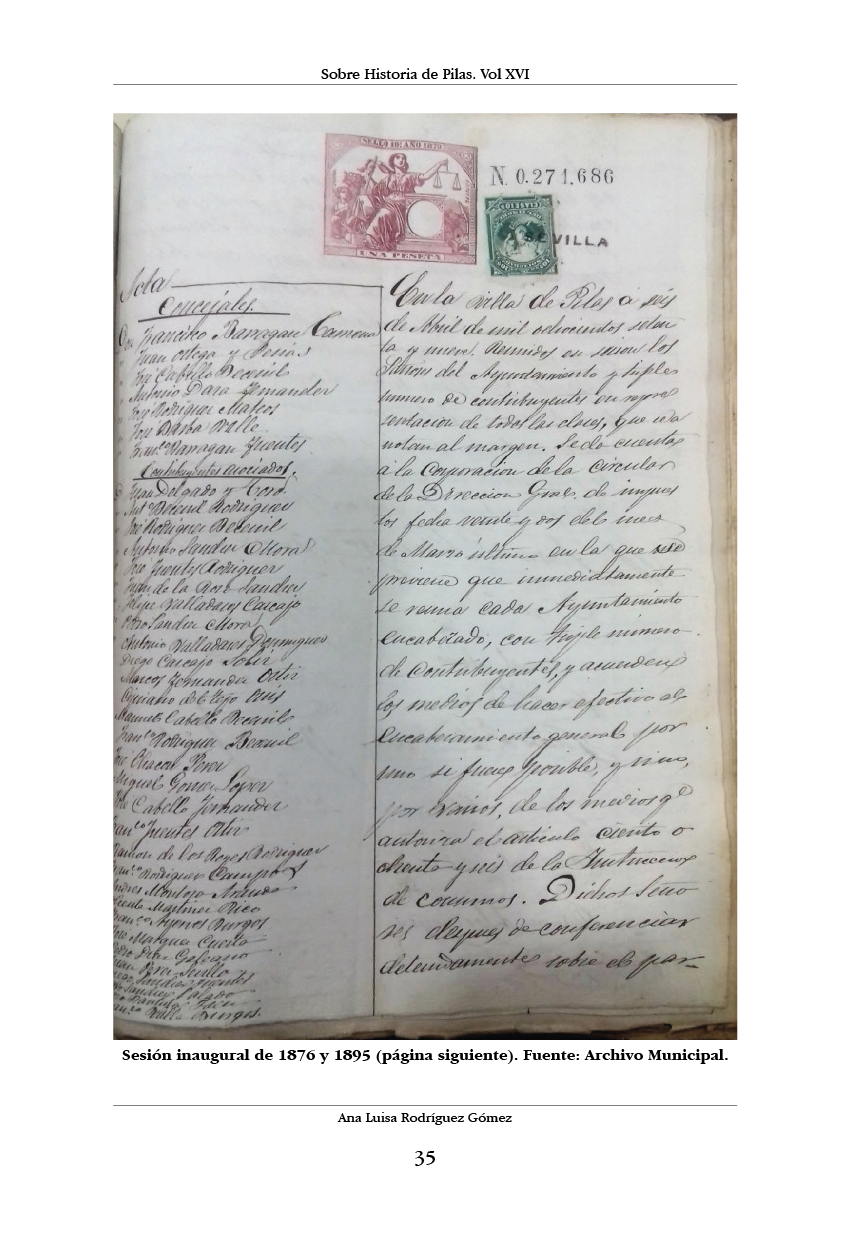 Sobre Historia de Pilas. Vol XVI
SELLO 10º AÑO 1879
UNA PESETA
N. 0.271.686
SEVILLA
Acta
Concejales.
Don Francisco Barragan
Juan Ortega y
José Caballo Bernil
Antonio Daza Fernandez
José Rodriguez Mateos
José Barba Valle
Franco Barragan Fuentes
Contribuyentes asociados.
Juan Delgado y
Anto Bernil Rodriguez
José Rodriguez Bernil
Antonio Sanchez Mora
José Fuentes Rodriguez
Juan de la Rosa Sanchez
Felipe Valladares Cascajo
Sanchez Mora
Antonio Valladares Dominguez
Diego Cascajo
Marcos Fernandez Ortiz
Cipriano del
Manuel Caballo Bernil
Franco Rodriguez Bernil
José Chacon Perez
Miguel Gomez Lopez
Caballo Fernandez
Franco Fuentes Ortiz
Ramon de los Reyes Rodriguez
Franco Rodriguez Campos
Andres Montoro Aranda
Vicente Martinez Rico
Franco Burgos
José Marquez Cuesta
Perez Sevilla
En la villa de Pilas á seis
de Abril de mil ochocientos seten
ta y nueve. Reunidos en sesion los
Señores del Ayuntamiento y triple
numero de contribuyentes en repre
sentacion de todas las clases, que se
notan al margen. Se dó cuenta
á la Corporacion de la circular
de la Direccion Gral. de impues
tos fecha veinte y dos del mes
de Marzo último en la que se
previene que inmediatamente
se reuna cada Ayuntamiento
encabezado, con triple número
de Contribuyentes, y acuerden
los medios de hacer efectivo el
encabezamiento general por
uno si fuere posible, y sino,
por varios, de los medios qe
autoriza el artículo ciento o
chenta y seis de la Instruccion
de consumos. Dichos Seño
res despues de conferenciar
detenidamente sobre el par-
Sesión inaugural de 1876 y 1895 (página siguiente). Fuente: Archivo Municipal.
Ana Luisa Rodríguez Gómez
35